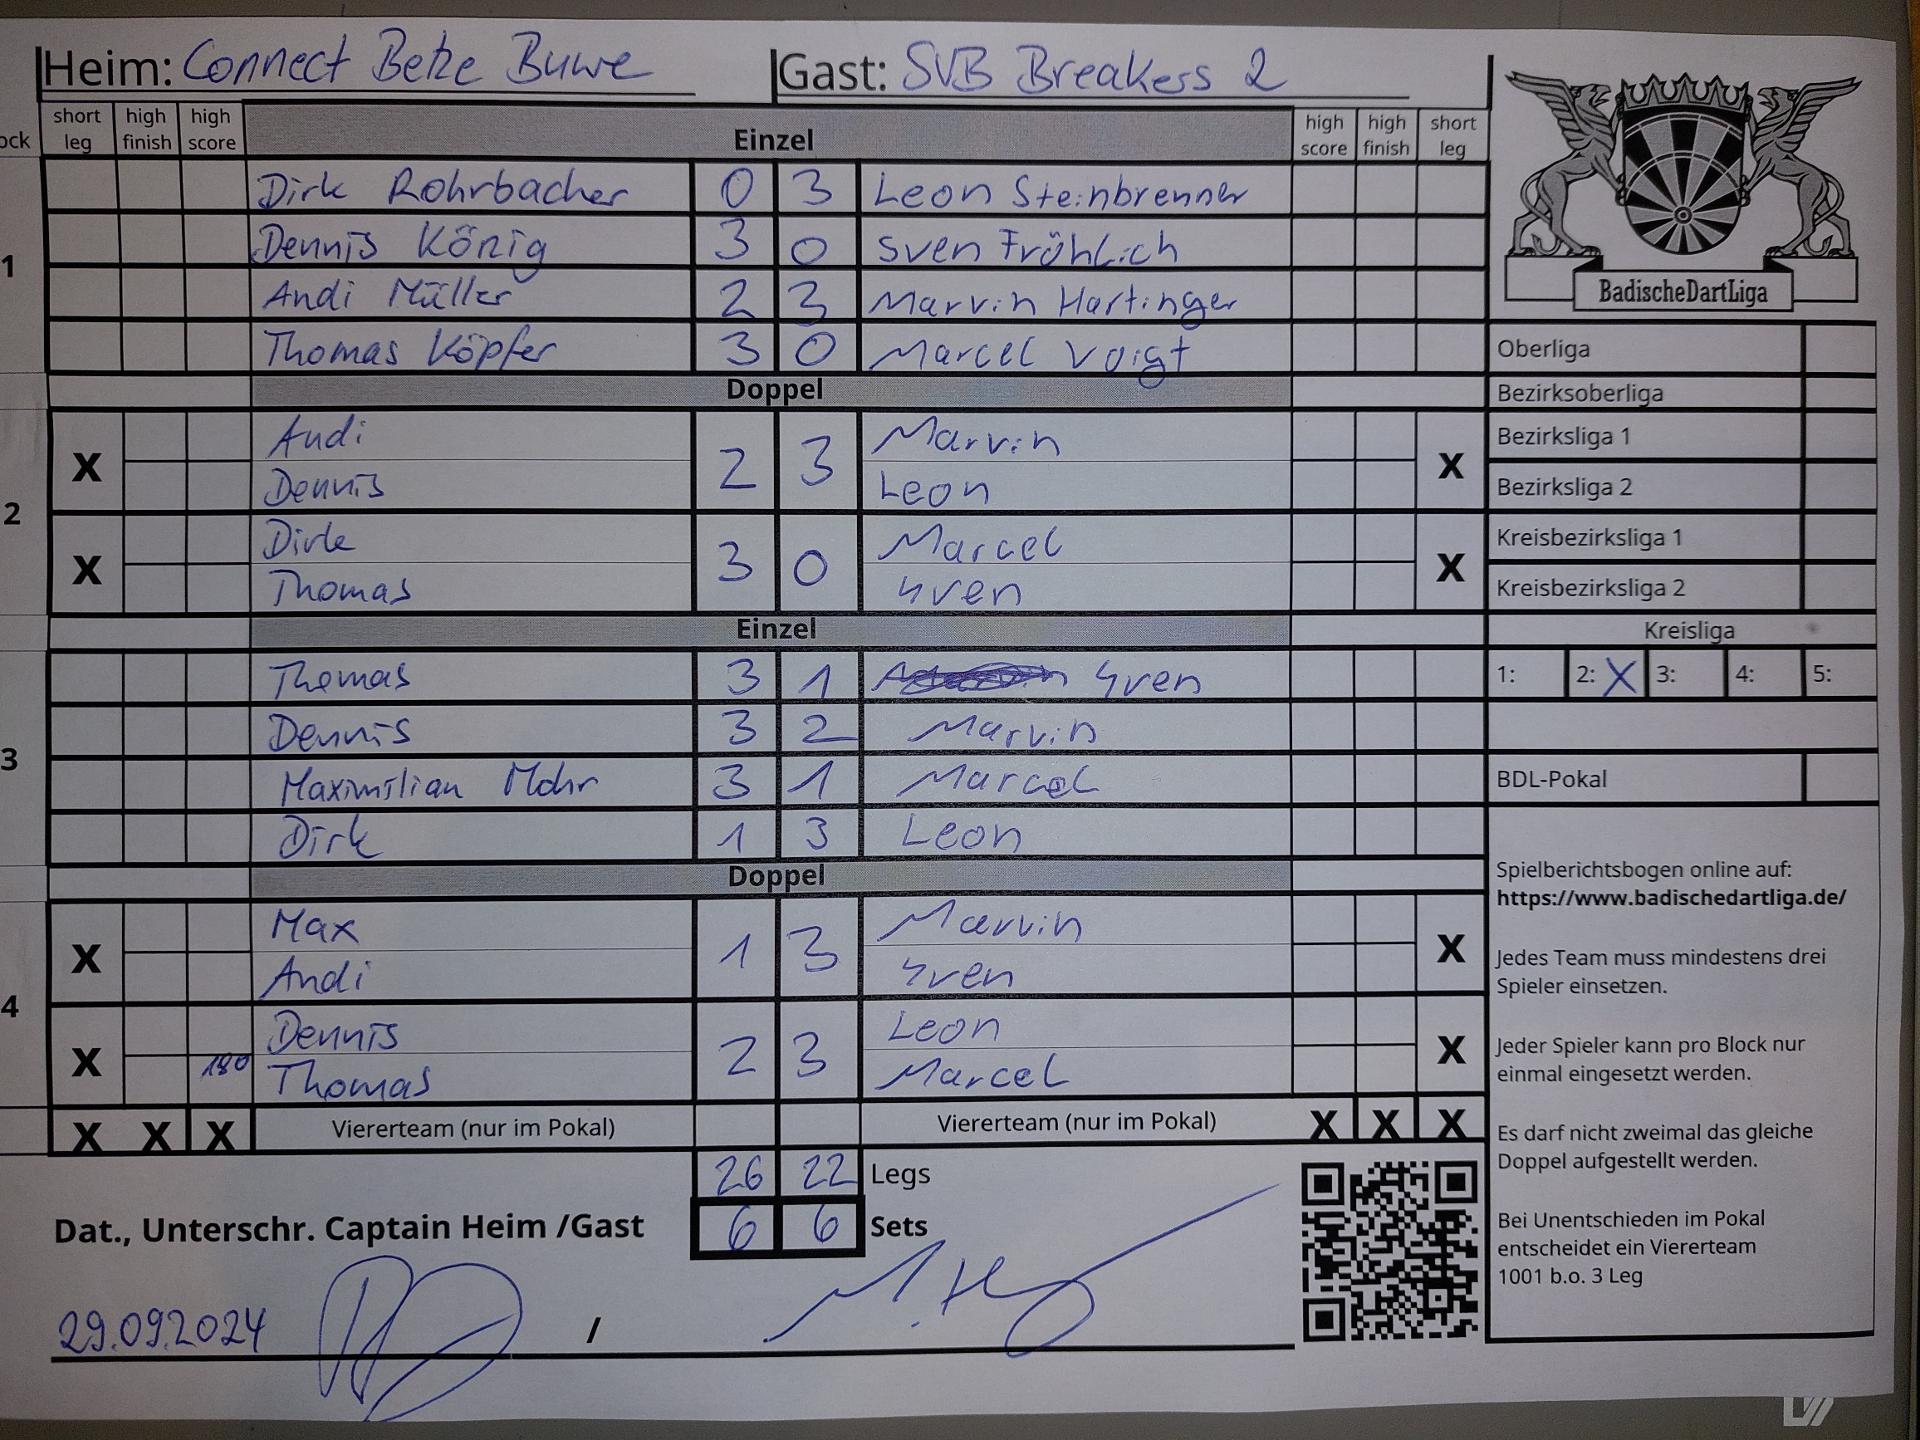 Heim: Connect Betze Buwe Gast: SVB Breakers 2
ock short leg high finish high score Einzel high score high finish short leg
1
Dirk Rohrbacher 0 3 Leon Steinbrenner
Dennis König 3 0 Sven Fröhlich
Andi Müller 2 3 Marvin Hartinger
Thomas Köpfer 3 0 Marcel Voigt
Doppel
2
X Andi 2 3 Marvin X
Dennis Leon
X Dirk 3 0 Marcel X
Thomas Sven
Einzel
3
Thomas 3 1 Sven
Dennis 3 2 Marvin
Maximilian Mohr 3 1 Marcel
Dirk 1 3 Leon
Doppel
4
X Max 1 3 Marvin X
Andi Sven
X Dennis 2 3 Leon X
180 Thomas Marcel
X X X Viererteam (nur im Pokal) Viererteam (nur im Pokal) X X X
26 22 Legs
6 6 Sets
Dat., Unterschr. Captain Heim /Gast
29.09.2024 /
BadischeDartLiga
Oberliga
Bezirksoberliga
Bezirksliga 1
Bezirksliga 2
Kreisbezirksliga 1
Kreisbezirksliga 2
Kreisliga
1: 2: X 3: 4: 5:
BDL-Pokal
Spielberichtsbogen online auf:
https://www.badischedartliga.de/
Jedes Team muss mindestens drei
Spieler einsetzen.
Jeder Spieler kann pro Block nur
einmal eingesetzt werden.
Es darf nicht zweimal das gleiche
Doppel aufgestellt werden.
Bei Unentschieden im Pokal
entscheidet ein Viererteam
1001 b.o. 3 Leg